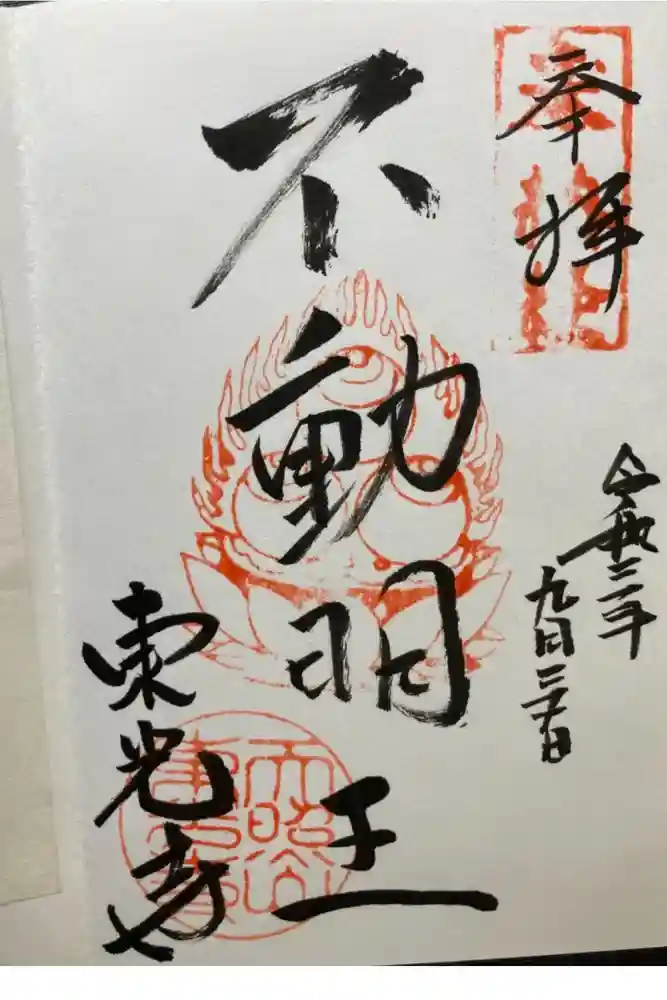 奉拝
令和二年
九月三十日
不動明王
東光寺